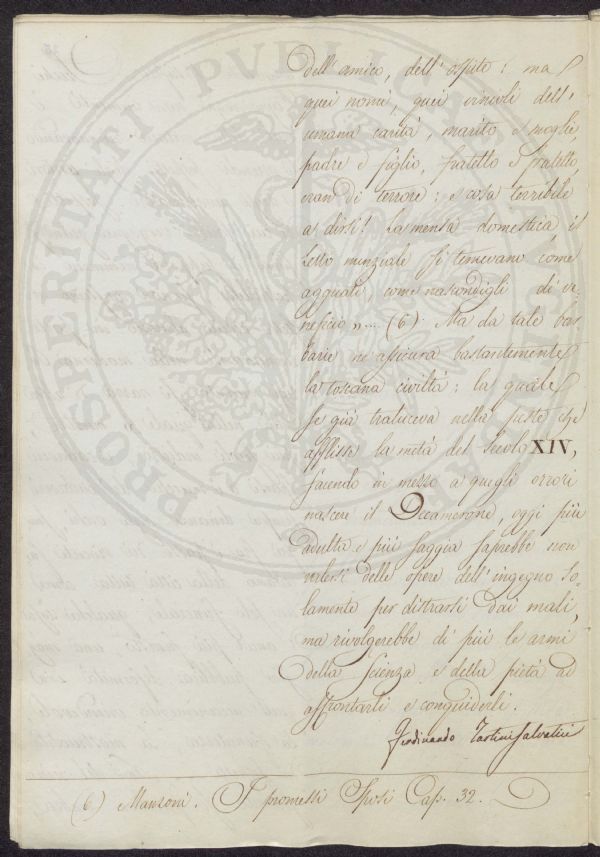 dell' amico, dell' ospite: ma
quei nomi, quei vincoli dell'
umana carità, marito e moglie,
padre e figlio, fratello e fratello,
eran di terrore: e cosa terribile
a dirsi! La mensa domestica il
letto nunziale si temevano come
agguati, come nascondigli di ve-
neficio„... (6) Ma da tale bar
barie ne assicura bastantemente
la toscana civiltà: la quale
se già traluceva nella peste che
afflisse la metà del secolo XIV,
facendo in mezzo a quegli orrori
nascere il Decamerone, oggi più
adulta e più saggia saprebbe non
valersi delle opere dell' ingegno so-
lamente per distrarsi dai mali,
ma rivolgerebbe di più le armi
della scienza e della pietà ad
affrontarli e conquiderli.
Ferdinando Tartini Salvatici
(6) Manzoni. I promessi Sposi Cap. 32.
PROSPERITATI PVBLICAE